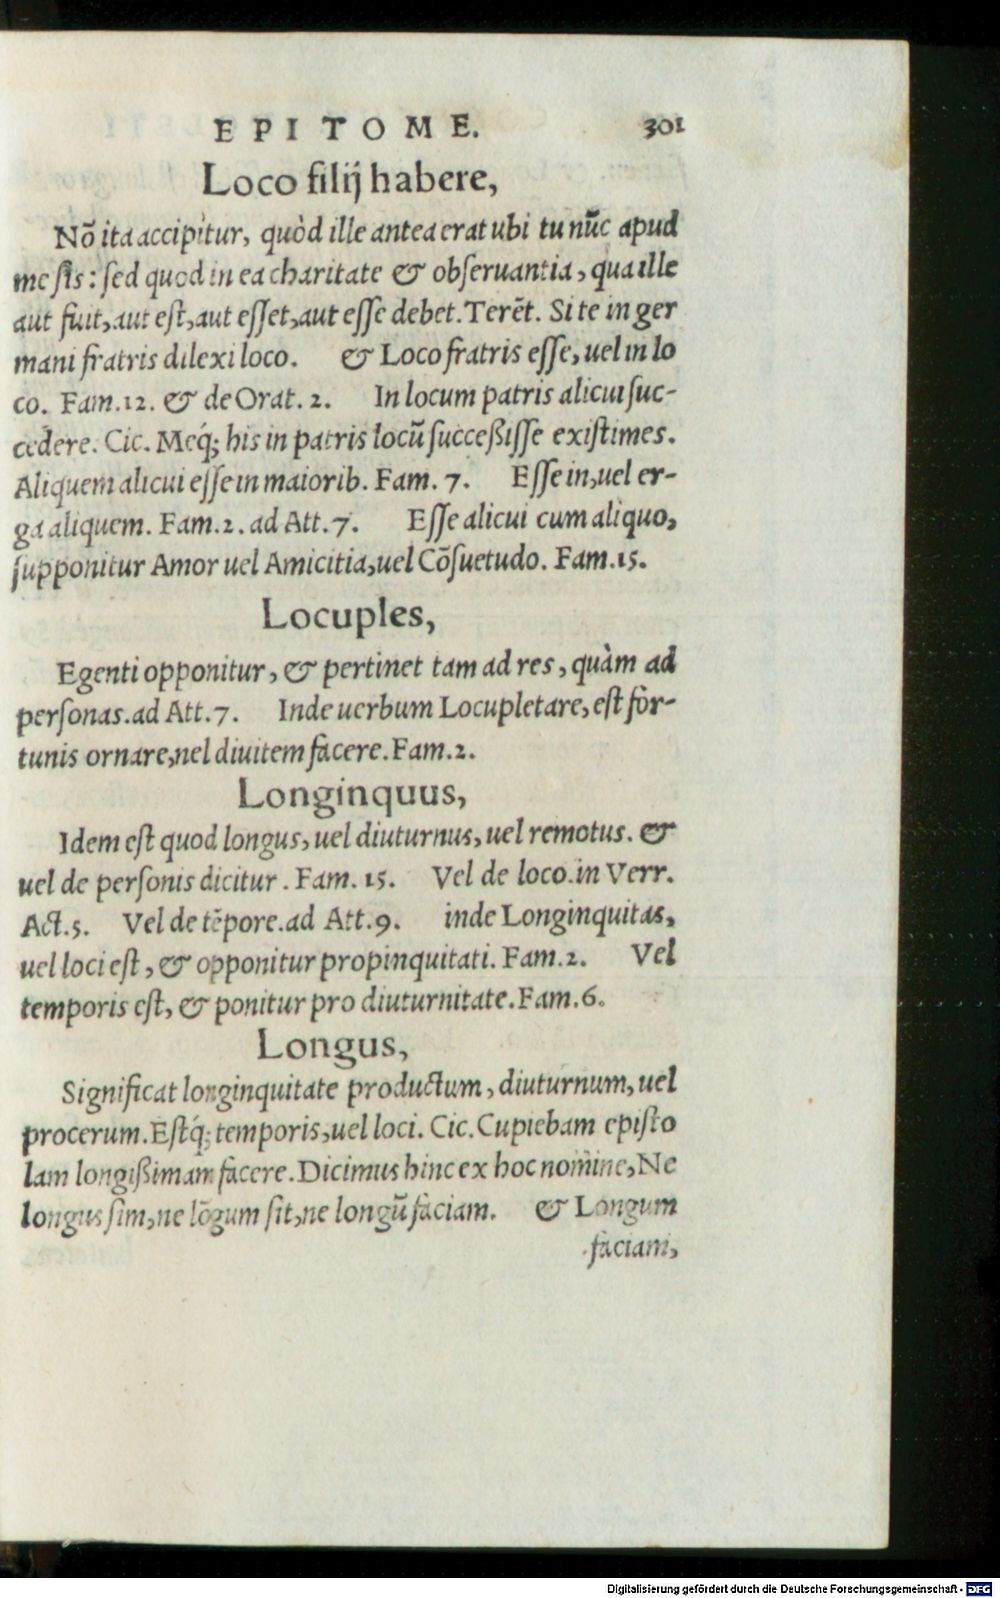 EPITOME. 301
Loco filij habere,
Nõ ita accipitur, quòd ille antea erat ubi tu nũc apud
me sis: sed quod in ea charitate & obseruantia, qua ille
aut fuit, aut est, aut esset, aut esse debet. Terẽt. Si te in ger
mani fratris dilexi loco. & Loco fratris esse, uel in lo
co. Fam.12. & de Orat. 2. In locum patris alicui suc-
cedere. Cic. Meq́; his in patris locũ successisse existimes.
Aliquem alicui esse in maiorib. Fam. 7. Esse in, uel er-
ga aliquem. Fam.2. ad Att.7. Esse alicui cum aliquo,
supponitur Amor uel Amicitia, uel Cõsuetudo. Fam.15.
Locuples,
Egenti opponitur, & pertinet tam ad res, quàm ad
personas. ad Att.7. Inde uerbum Locupletare, est for-
tunis ornare, nel diuitem facere. Fam.2.
Longinquus,
Idem est quod longus, uel diuturnus, uel remotus. &
uel de personis dicitur. Fam. 15. Vel de loco. in Verr.
Act.5. Vel de tẽpore. ad Att.9. inde Longinquitas,
uel loci est, & opponitur propinquitati. Fam.2. Vel
temporis est, & ponitur pro diuturnitate. Fam.6.
Longus,
Significat longinquitate productum, diuturnum, uel
procerum. Estq́; temporis, uel loci. Cic. Cupiebam episto
lam longissimam facere. Dicimus hinc ex hoc nomine, Ne
longus sim, ne lõgum sit, ne longũ faciam. & Longum
faciam,
Digitalisierung gefördert durch die Deutsche Forschungsgemeinschaft - DFG